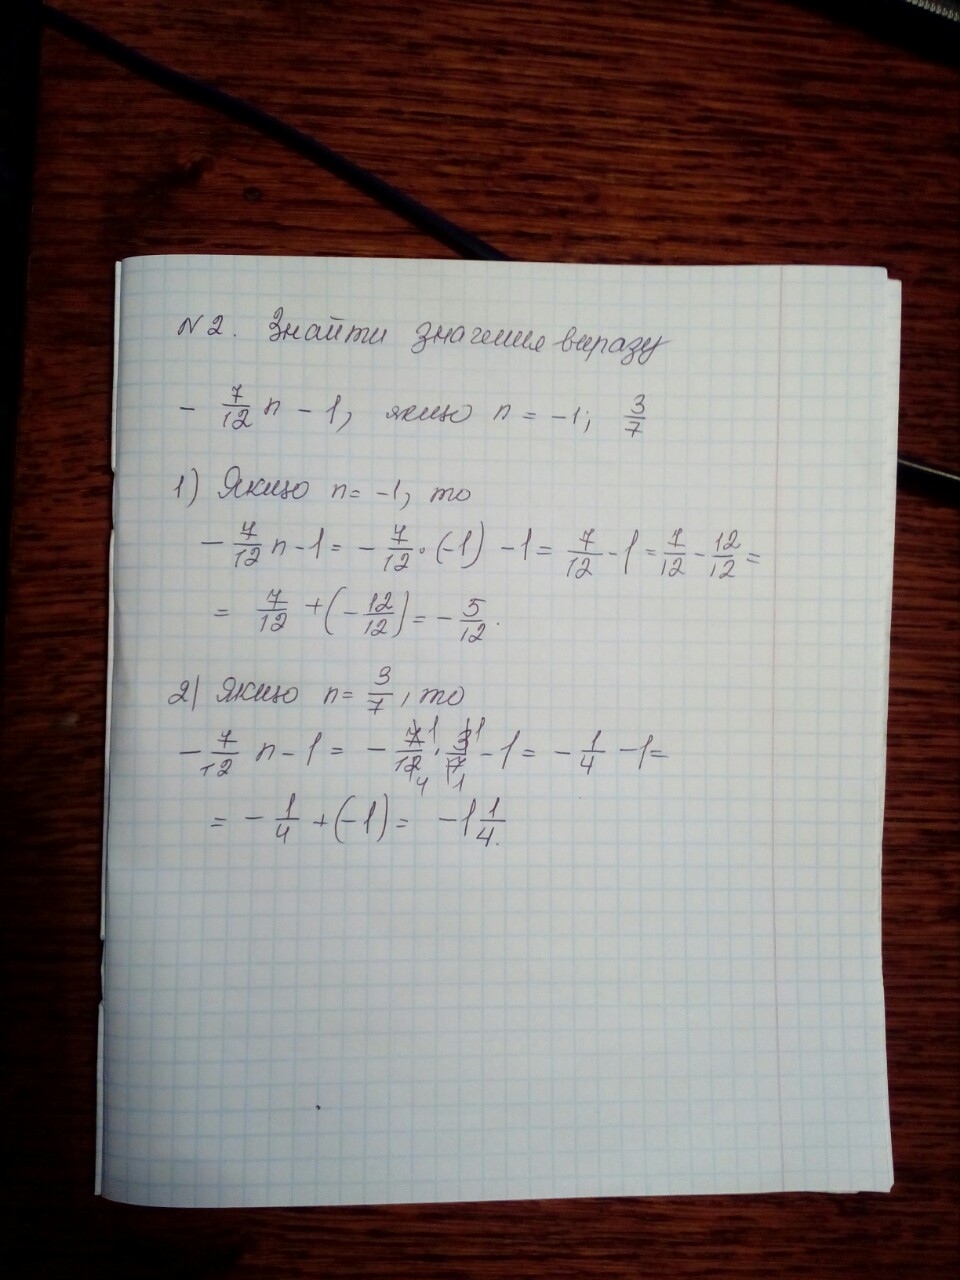 N2. Знайти значення виразу
- 7/12 n - 1, якщо n = -1; 3/7
1) Якщо n = -1, то
- 7/12 n - 1 = - 7/12 · (-1) - 1 = 7/12 - 1 = 7/12 - 12/12 =
= 7/12 + (- 12/12) = - 5/12.
2) Якщо n = 3/7, то
- 7/12 n - 1 = - 7/12 · 3/7 - 1 = - 1/4 - 1 =
= - 1/4 + (-1) = -1 1/4.